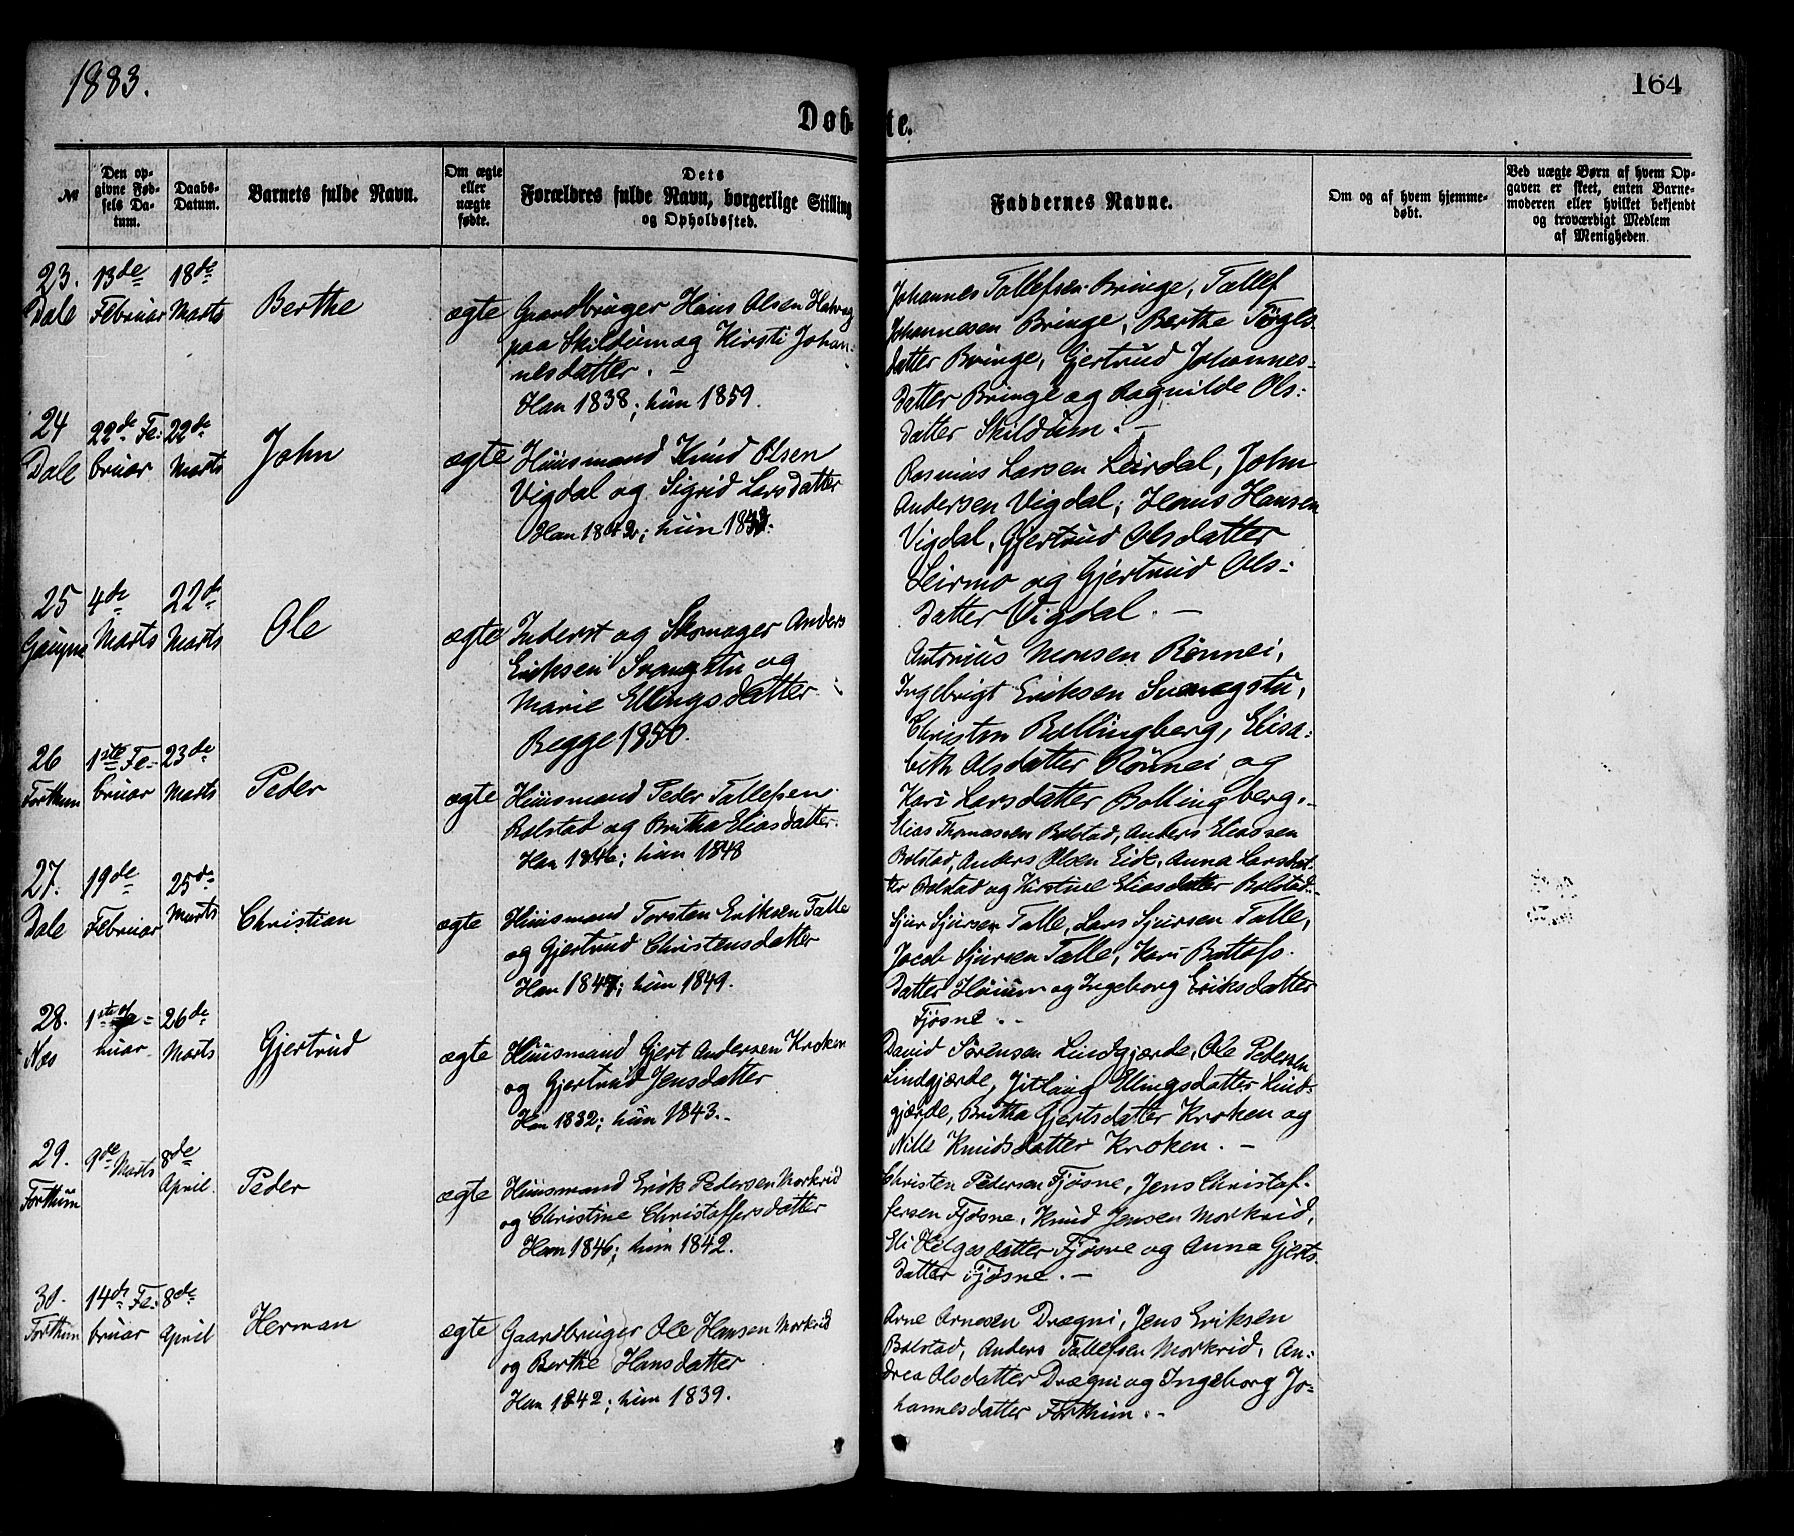 1883.
164
Døbte.
№
Den opgivne Fødsels Datum.
Daabs-Datum.
Barnets fulde Navn.
Om ægte eller uægte fødte.
Dets Forældres fulde Navn, borgerlige Stilling og Opholdssted.
Faddernes Navne.
Om og af hvem hjemmedøbt.
Ved uægte Børn af hvem Opgaven er skeet, enten Barnemoderen eller hvilket bekjendt og troværdigt Medlem af Menigheden.
23. Dale
13de Februar
18de Marts
Berthe
ægte
Gaardbruger Hans Olsen
paa Skildum og Kirsti Johan-
nesdatter. -
Han 1838; hun 1859.
Johannes Tollefsen Bringe, Tollef
Johannesen Bringe, Berthe
datter Bringe, Gjertrud Johannes-
datter Bringe og Ragnilde Ols-
datter Skildum. -
24 Dale
22de Februar
22de Marts
John
ægte
Huusmand Knud Olsen
Vigdal og Sigrid Larsdatter
Han 1842; hun
Rasmus Larsen Leirdal, John
Andersen Vigdal, Hans Hansen
Vigdal, Gjertrud Olsdatter
Leirmo og Gjertrud Ols-
datter Vigdal. -
25 Gaupne
4de Marts
22de Marts
Ole
ægte
Inderst og Skomager Anders
Eriksen og
Marie Ellingsdatter
Begge 1850.
Antonius Monsen Rønnei,
Ingebrigt Eriksen
Christen Bollingberg, Elisa-
beth Olsdatter Rønnei og
Kari Larsdatter Bollingberg. -
26 Forthun
1ste Februar
23de Marts
Peder
ægte
Huusmand Peder Tollefsen
Bolstad og Britha Eliasdatter.
Han 1846; hun 1848
Elias Thomassen Bolstad, Anders Eliassen
Bolstad, Anders Olsen Eide, Anna Larsdat-
ter Bolstad og Kirstine Eliasdatter Bolstad. -
27. Dale
19de Februar
25de Marts
Christian
ægte
Huusmand Torsten Eriksen Talle
og Gjertrud Christensdatter
Han 1847; hun 1849.
Sjur Sjursen Talle, Lars Sjursen Talle,
Jacob Sjursen Talle, Kari Bottolfs-
datter Høium og Ingeborg Eriksdatter
Fjøsne. -
28. Næs
1ste
26de Marts
Gjertrud
ægte
Huusmand Gjert Andersen Kroken
og Gjertrud Jensdatter
Han 1832; hun 1843. -
David Sørensen Lindgjærde, Ole Pedersen
Lindgjærde, Jitlaug Ellingsdatter Lind-
gjærde, Britha Gjertsdatter Kroken og
Nille Knudsdatter Kroken. -
29. Forthun
9de Marts
8de April.
Peder
ægte
Huusmand Erik Pedersen Morkrid
og Christine Christoffersdatter
Han 1846; hun 1842.
Christen Pedersen Fjøsne, Jens Christof-
fersen Fjøsne, Knud Jensen Morkrid,
Eli Helgesdatter Fjøsne og Anna Gjerts-
datter Fjøsne. -
30. Forthun
14de Februar
8de April
Herman
ægte
Gaardbruger Ole Hansen Morkrid
og Berthe Hansdatter
Han 1842; hun 1839.
Arne Arnesen Drægni, Jens Eriksen
Bolstad, Anders Tollefsen Morkrid, An-
drea Olsdatter Drægni og Ingeborg Jo-
hannesdatter Forthun. -